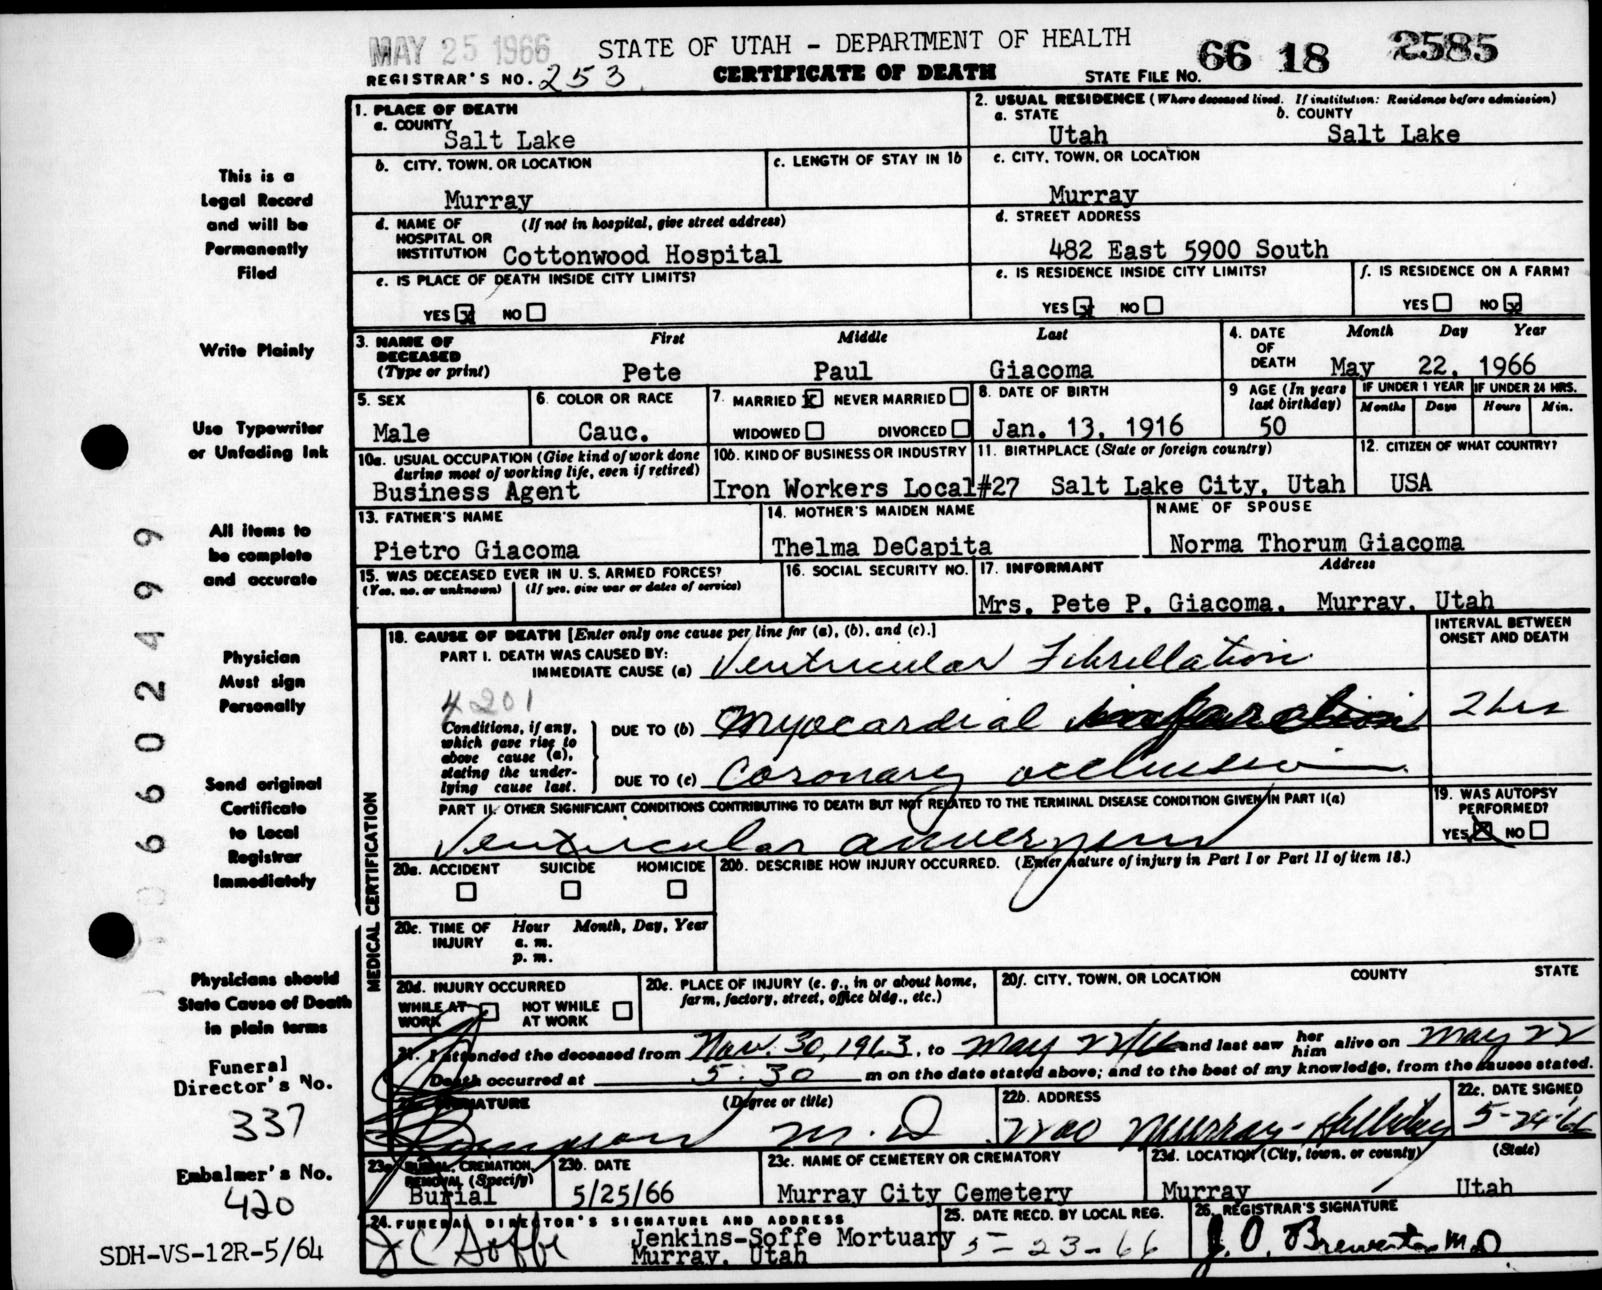 MAY 25 1966
STATE OF UTAH - DEPARTMENT OF HEALTH
66 18 2585
REGISTRAR'S NO. 253
CERTIFICATE OF DEATH
STATE FILE NO.
1. PLACE OF DEATH
a. COUNTY
Salt Lake
2. USUAL RESIDENCE (Where deceased lived. If institution: Residence before admission)
a. STATE
Utah
b. COUNTY
Salt Lake
b. CITY, TOWN, OR LOCATION
Murray
c. LENGTH OF STAY IN 1b
c. CITY, TOWN, OR LOCATION
Murray
d. NAME OF HOSPITAL OR INSTITUTION (If not in hospital, give street address)
Cottonwood Hospital
d. STREET ADDRESS
482 East 5900 South
e. IS PLACE OF DEATH INSIDE CITY LIMITS?
YES x NO
e. IS RESIDENCE INSIDE CITY LIMITS?
YES x NO
f. IS RESIDENCE ON A FARM?
YES NO x
3. NAME OF DECEASED (Type or print)
First Middle Last
Pete Paul Giacoma
4. DATE OF DEATH
Month Day Year
May 22, 1966
5. SEX
Male
6. COLOR OR RACE
Cauc.
7. MARRIED x NEVER MARRIED
WIDOWED DIVORCED
8. DATE OF BIRTH
Jan. 13, 1916
9 AGE (In years last birthday)
50
IF UNDER 1 YEAR
Months Days
IF UNDER 24 HRS.
Hours Min.
10a. USUAL OCCUPATION (Give kind of work done during most of working life, even if retired)
Business Agent
10b. KIND OF BUSINESS OR INDUSTRY
Iron Workers Local#27
11. BIRTHPLACE (State or foreign country)
Salt Lake City, Utah
12. CITIZEN OF WHAT COUNTRY?
USA
13. FATHER'S NAME
Pietro Giacoma
14. MOTHER'S MAIDEN NAME
Thelma DeCapita
NAME OF SPOUSE
Norma Thorum Giacoma
15. WAS DECEASED EVER IN U. S. ARMED FORCES?
(Yes, no, or unknown) (If yes, give war or dates of service)
16. SOCIAL SECURITY NO.
17. INFORMANT Address
Mrs. Pete P. Giacoma, Murray, Utah
MEDICAL CERTIFICATION
18. CAUSE OF DEATH [Enter only one cause per line for (a), (b), and (c).]
INTERVAL BETWEEN ONSET AND DEATH
PART I. DEATH WAS CAUSED BY:
IMMEDIATE CAUSE (a) Ventricular Fibrillation
4201
Conditions, if any, which gave rise to above cause (a), stating the underlying cause last.
DUE TO (b) Myocardial infarction 2 hrs
DUE TO (c) Coronary occlusion
PART II. OTHER SIGNIFICANT CONDITIONS CONTRIBUTING TO DEATH BUT NOT RELATED TO THE TERMINAL DISEASE CONDITION GIVEN IN PART I(a)
Ventricular aneurysm
19. WAS AUTOPSY PERFORMED?
YES X NO
20a. ACCIDENT SUICIDE HOMICIDE
20b. DESCRIBE HOW INJURY OCCURRED. (Enter nature of injury in Part I or Part II of item 18.)
20c. TIME OF INJURY Hour Month, Day, Year
a. m.
p. m.
20d. INJURY OCCURRED
WHILE AT WORK NOT WHILE AT WORK
20e. PLACE OF INJURY (e. g., in or about home, farm, factory, street, office bldg., etc.)
20f. CITY, TOWN, OR LOCATION COUNTY STATE
21. I attended the deceased from Nov. 30, 1963, to May 22/66 and last saw her him alive on May 22
Death occurred at 5:30 m on the date stated above; and to the best of my knowledge, from the causes stated.
SIGNATURE (Degree or title)
M.D.
22b. ADDRESS
Murray-Holladay
22c. DATE SIGNED
5-24-66
23a. BURIAL, CREMATION, REMOVAL (Specify)
Burial
23b. DATE
5/25/66
23c. NAME OF CEMETERY OR CREMATORY
Murray City Cemetery
23d. LOCATION (City, town, or county) (State)
Murray Utah
24. FUNERAL DIRECTOR'S SIGNATURE AND ADDRESS
J C Soffe
Jenkins-Soffe Mortuary
Murray, Utah
25. DATE RECD. BY LOCAL REG.
5-23-66
26. REGISTRAR'S SIGNATURE
J. O. Brewerton M.D
This is a
Legal Record
and will be
Permanently
Filed
Write Plainly
Use Typewriter
or Unfading Ink
All items to
be complete
and accurate
Physician
Must sign
Personally
Send original
Certificate
to Local
Registrar
Immediately
Physicians should
State Cause of Death
in plain terms
Funeral
Director's No.
337
Embalmer's No.
420
SDH-VS-12R-5/64
6602499